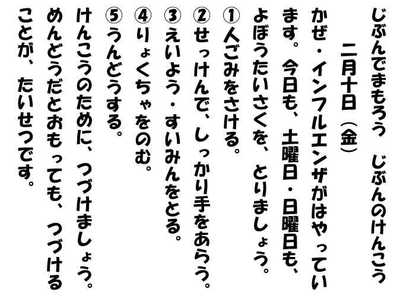 じぶんでまもろう　じぶんのけんこう
二月十日（金）
かぜ・インフルエンザがはやってい
ます。今日も、土曜日・日曜日も、
よぼうたいさくを、とりましょう。
①人ごみをさける。
②せっけんで、しっかり手をあらう。
③えいよう・すいみんをとる。
④りょくちゃをのむ。
⑤うんどうする。
けんこうのために、つづけましょう。
めんどうだとおもっても、つづける
ことが、たいせつです。